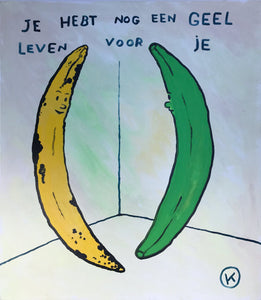 JE HEBT NOG EEN GEEL
LEVEN VOOR JE
K